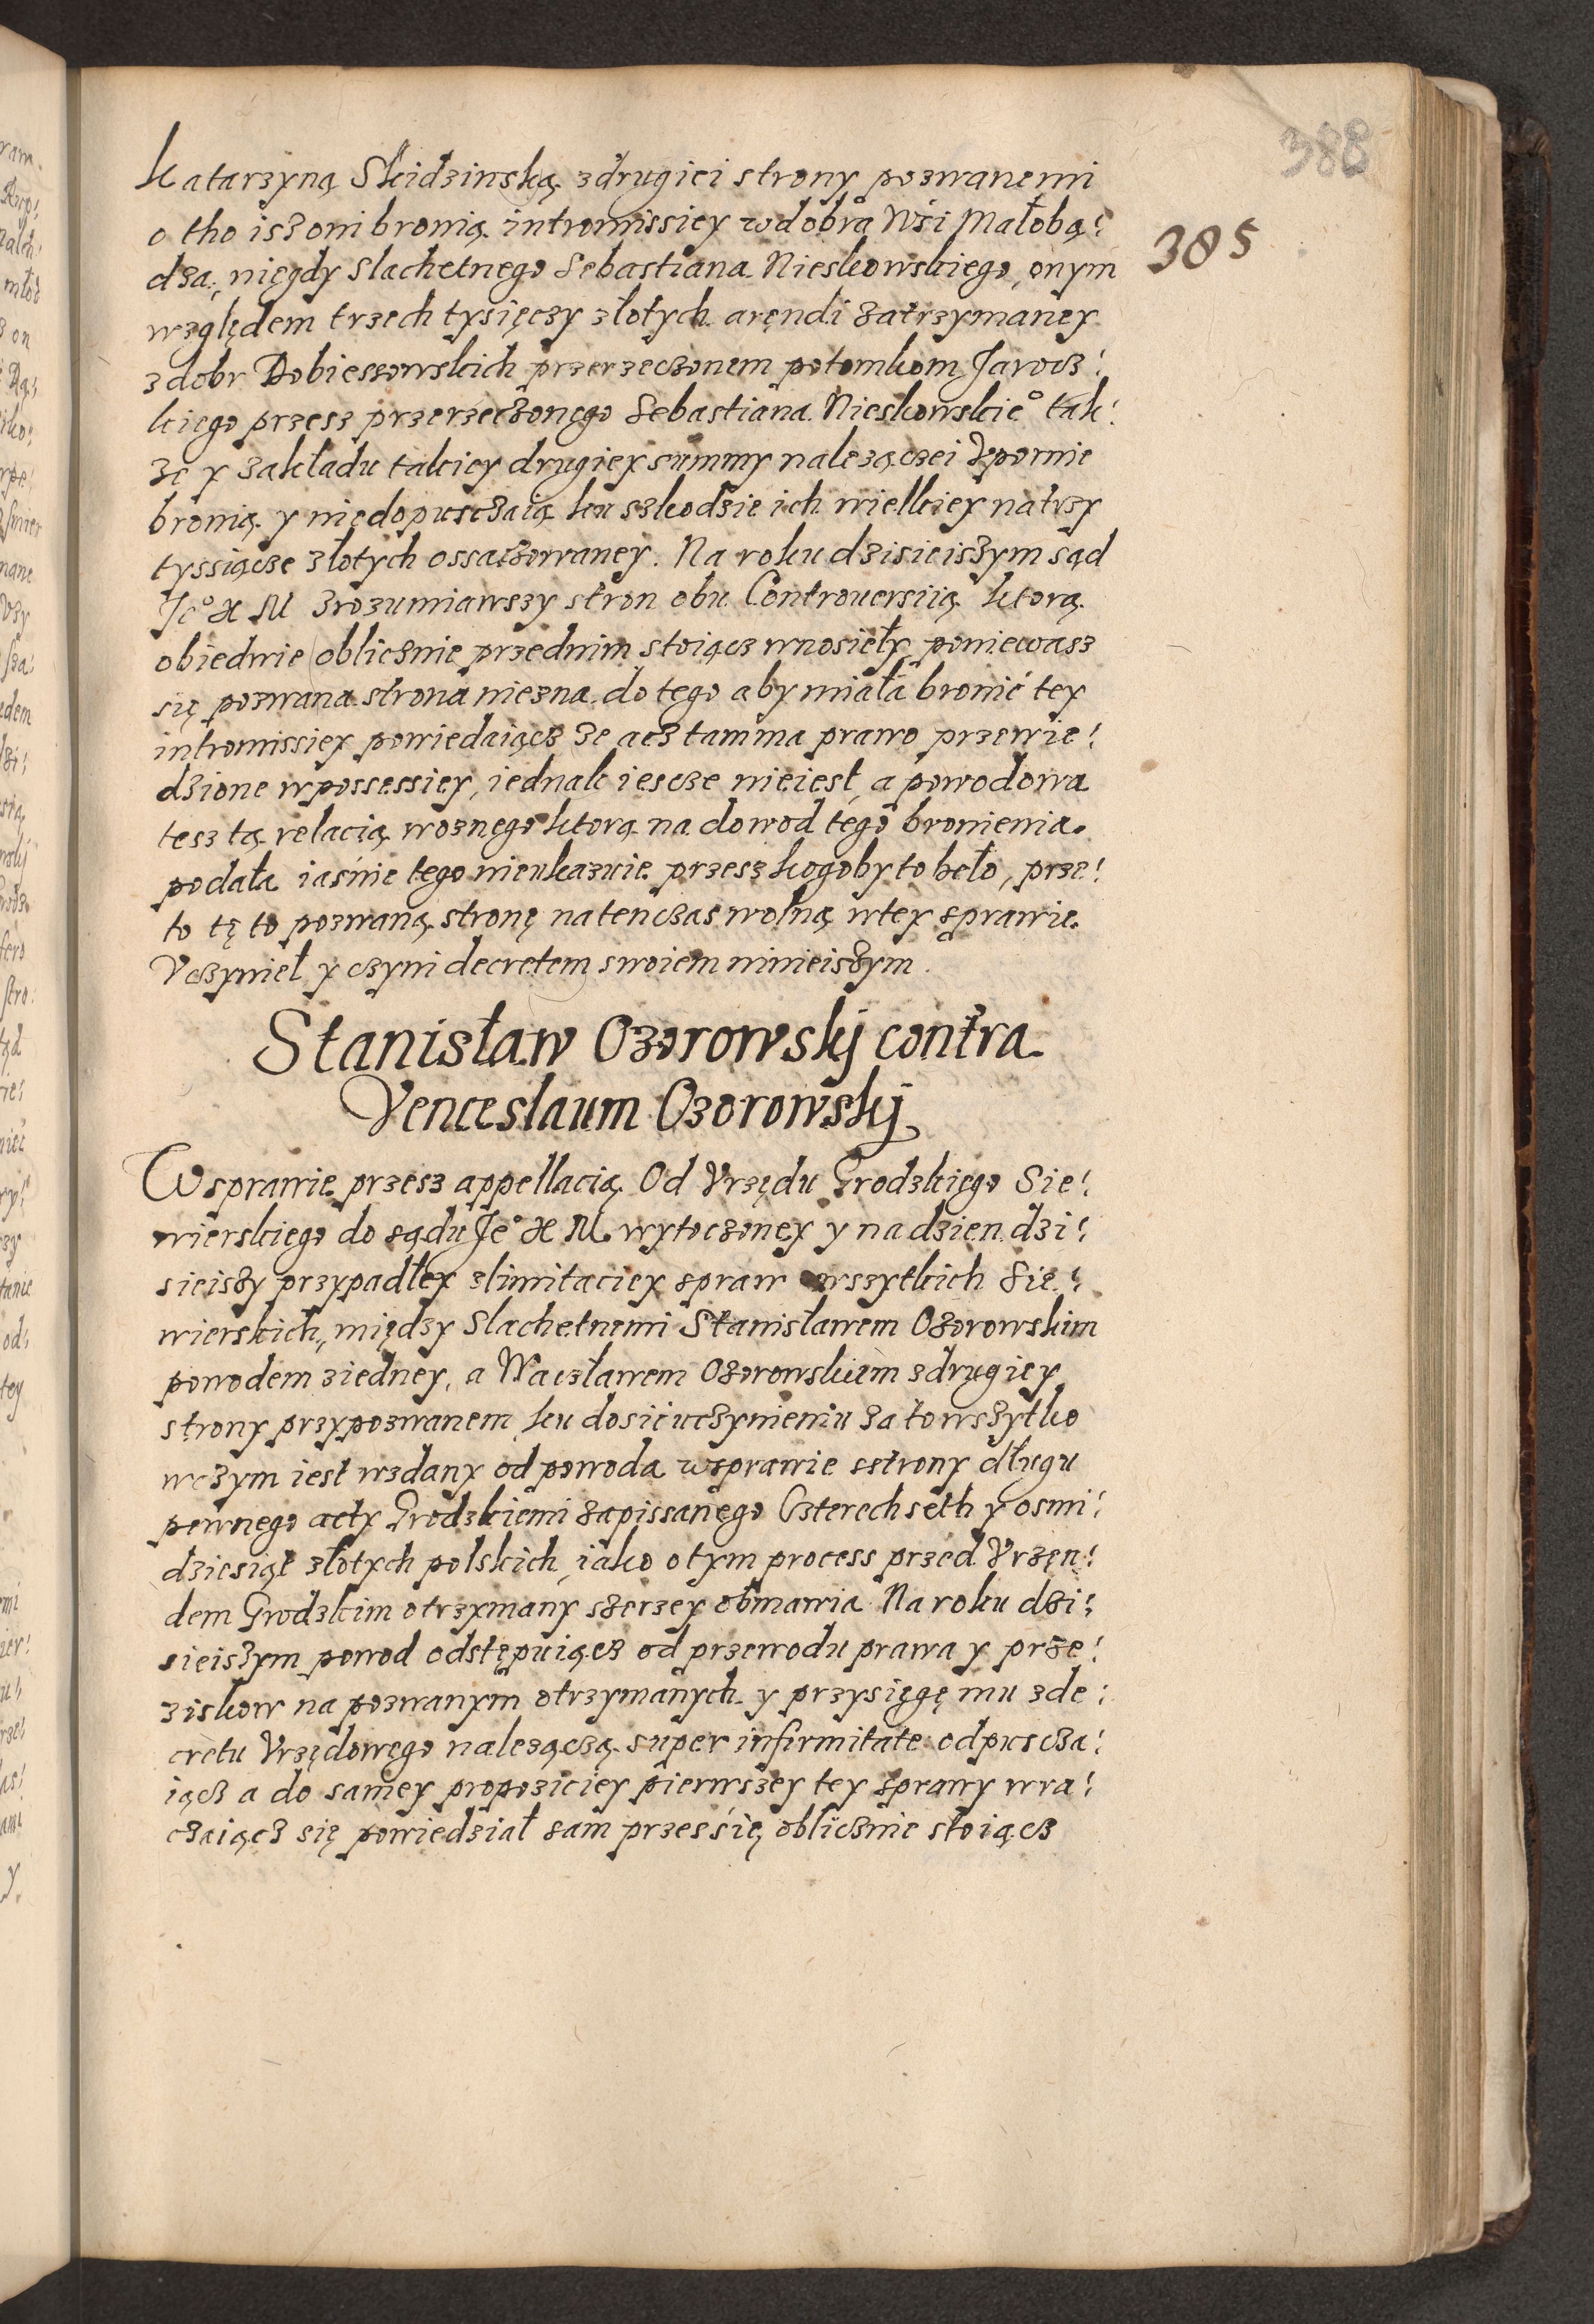 388
Katarzyną Skidzinską zdrugiei strony pozwanemi
o tho isz oni bronią intromissiey w dobra Wsi Małobą:
385
dza, niegdy Slachetnego Sebastiana Nieskowskiego, onym
względem trzech tysięczy złotych arendi zatrzymaney
z dobr Dobieszowskich przerzeczonem potomkom Jarocz:
kiego przesz przerzeczonego Sebastiana Nieskowskieº tak:
ze y zakładu takiey drugiey summy nalezączei Vpornie
bronią y niedopusczaią ku szkodzie ich wielkiey na trzy
tyssiącze złotych ossaczowaney. Na roku dzisieiszym sąd
Jeº X M zrozumiawszy stron obu Controuersiią ktorą
obiedwie oblicznie przednim stoiącz wnosieły, poniewasz
się pozwana strona niezna do tego aby miała bronić tey
intromissiey powiedaiącz ze acz tam ma prawo przewie:
dzione w possessiey, iednak iescze nieiest, a powodowa
tesz tą relacią woznego ktorą na dowod tego bronienia
podała iaśnie tego nieukazuie przesz kogoby to beło, prze:
to tę to pozwaną stronę na tenczas wolną w tey sprawie
Vczynieł y czyni decretem swoiem ninieiszym.
Stanisław Ozorowskj contra
Venceslaum Ozorowskj
W sprawie przesz appellacią Od Vrzędu Grodzkiego Sie:
wierskiego do sądu Jeº X M. wytoczoney y na dzien dzi:
sieiszy przypadłey z limitaciey spraw wszytkich Sie:
wierskich, między Slachetnemi Stanisławem Ozorowskim
powodem z iedney, a Waczławem Ozorowskiem z drugiey
strony przypozwanem ku dosić uczynieniu za to wszytko
w czym iest wzdany od powoda w sprawie s strony długu
pewnego acty Grodzkiemi zapissanego Czterech seth y osmi:
dziesiąt złotych polskich, iako o tym process przed Vrzęn:
dem Grodzkim otrzymany szerzey obmawia. Na roku dzi:
sieiszym powod odstępuiącz od przewodu prawa y prze:
ziskow na pozwanym otrzymanych y przysięgę mu z de:
cretu Vrzędowego nalezączą super infirmitate odpuscza:
iącz a do samey propoziciey pierwszey tey sprawy wra:
czaiącz się powiedział sam przes się oblicznie stoiącz